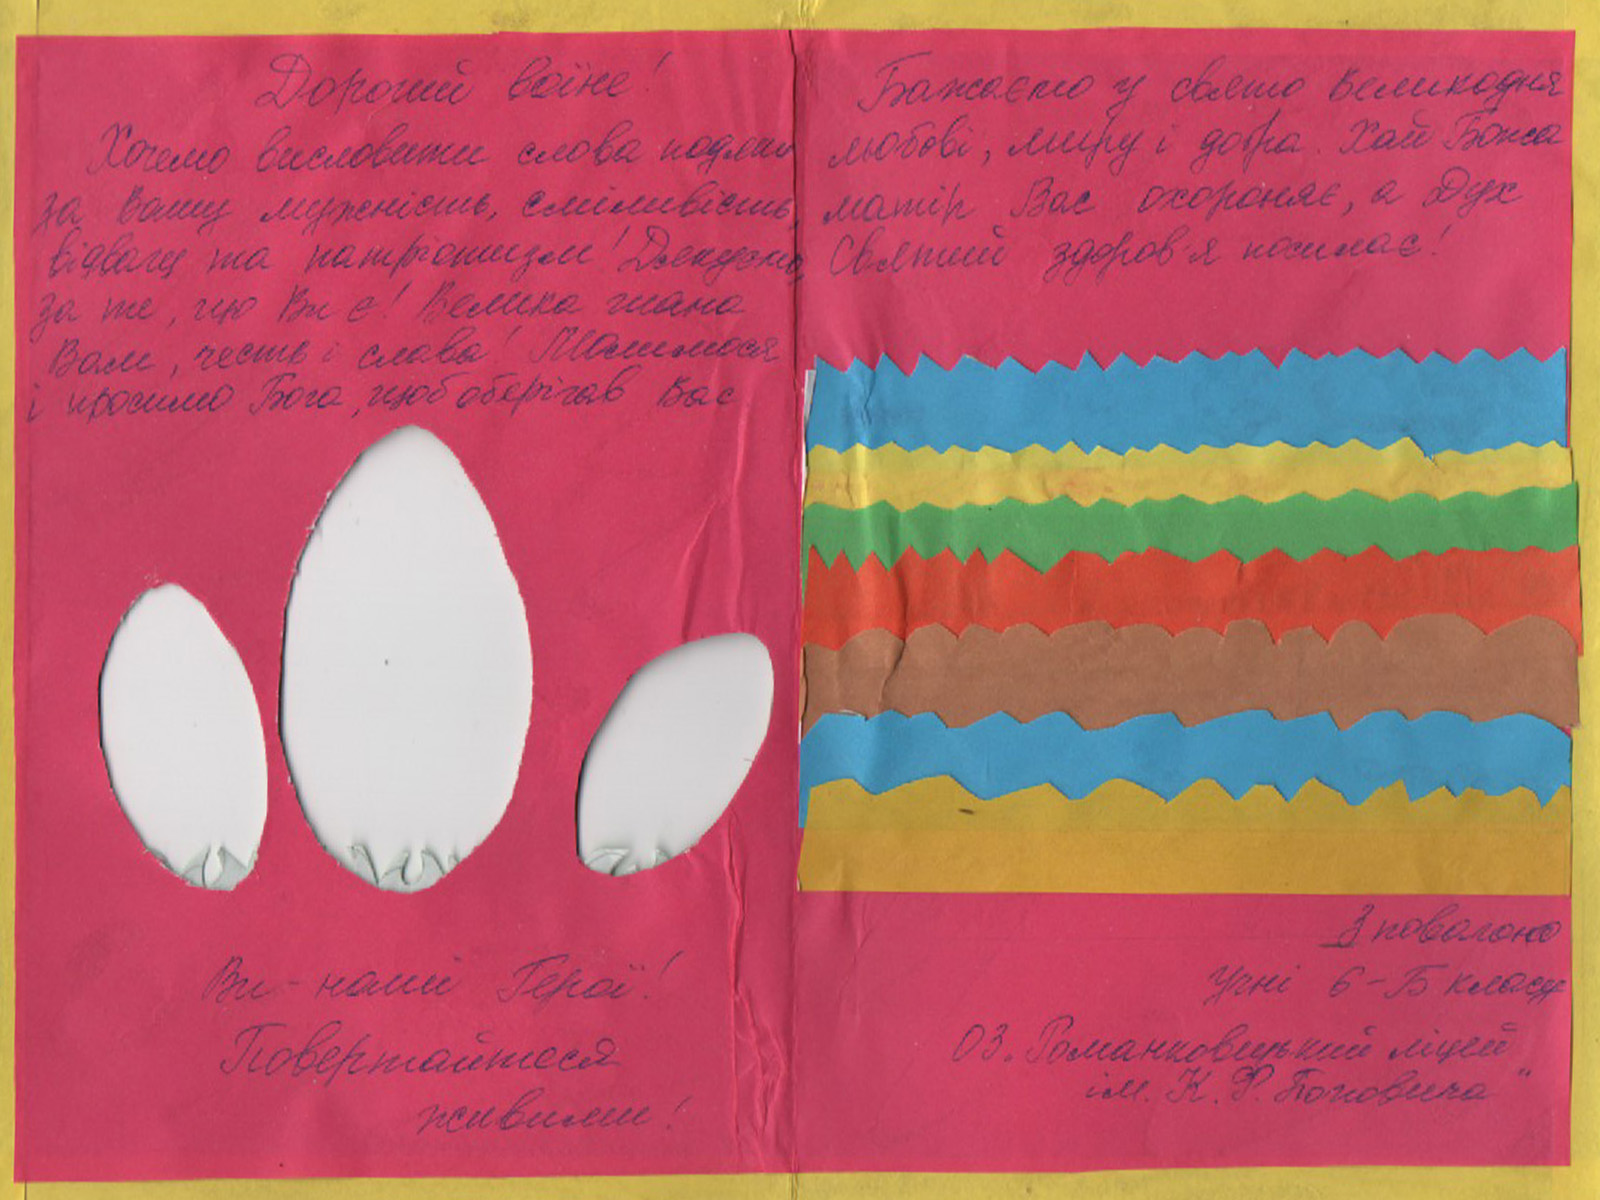 Дорогий воїне!
Хочемо висловити слова подяки
за Вашу мужність, сміливість,
відвагу та патріотизм! Дякуємо
за те, що Ви є! Велика шана
Вам, честь і слава! Молимося
і просимо Бога, щоб оберігав Вас
Ви - наші Герої!
Повертайтеся
живими!
Бажаємо у свято Великодня
любові, миру і добра. Хай Божа
матір Вас охороняє, а Дух
Святий здоров'я посилає!
З повагою
Учні 6-Б класу
ОЗ. Романковецький ліцей
ім. К. Ф. Поповича"